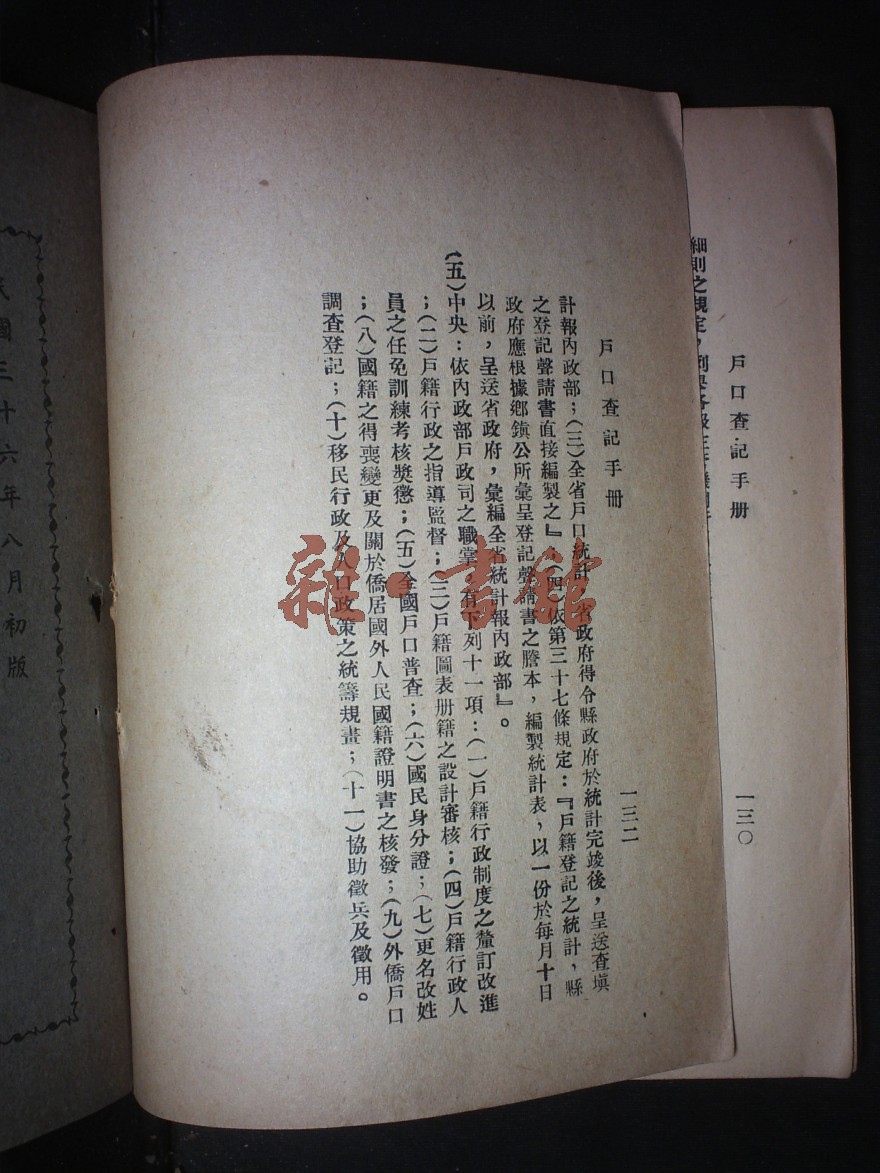 戶口查記手册
一三〇
細則之規定，
戶口查記手册
一三二
計報內政部；(三)全省戶口統計，省政府得令縣政府於統計完竣後，呈送查塡
之登記聲請書直接編製之』；(四)依第三十七條規定：『戶籍登記之統計，縣
政府應根據鄕鎭公所彙呈登記聲請書之謄本，編製統計表，以一份於每月十日
以前，呈送省政府，彙編全省統計報內政部』。
(五)中央：依內政部戶政司之職掌，有下列十一項：(一)戶籍行政制度之釐訂改進
；(二)戶籍行政之指導監督；(三)戶籍圖表册籍之設計審核；(四)戶籍行政人
員之任免訓練考核獎懲；(五)全國戶口普查；(六)國民身分證；(七)更名改姓
；(八)國籍之得喪變更及關於僑居國外人民國籍證明書之核發；(九)外僑戶口
調查登記；(十)移民行政及人口政策之統籌規畫；(十一)協助徵兵及徵用。
民國三十六年八月初版
雜·書館